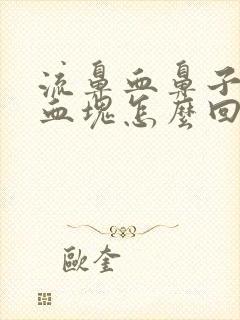 流鼻血鼻子
血塊怎麼回
歐奎